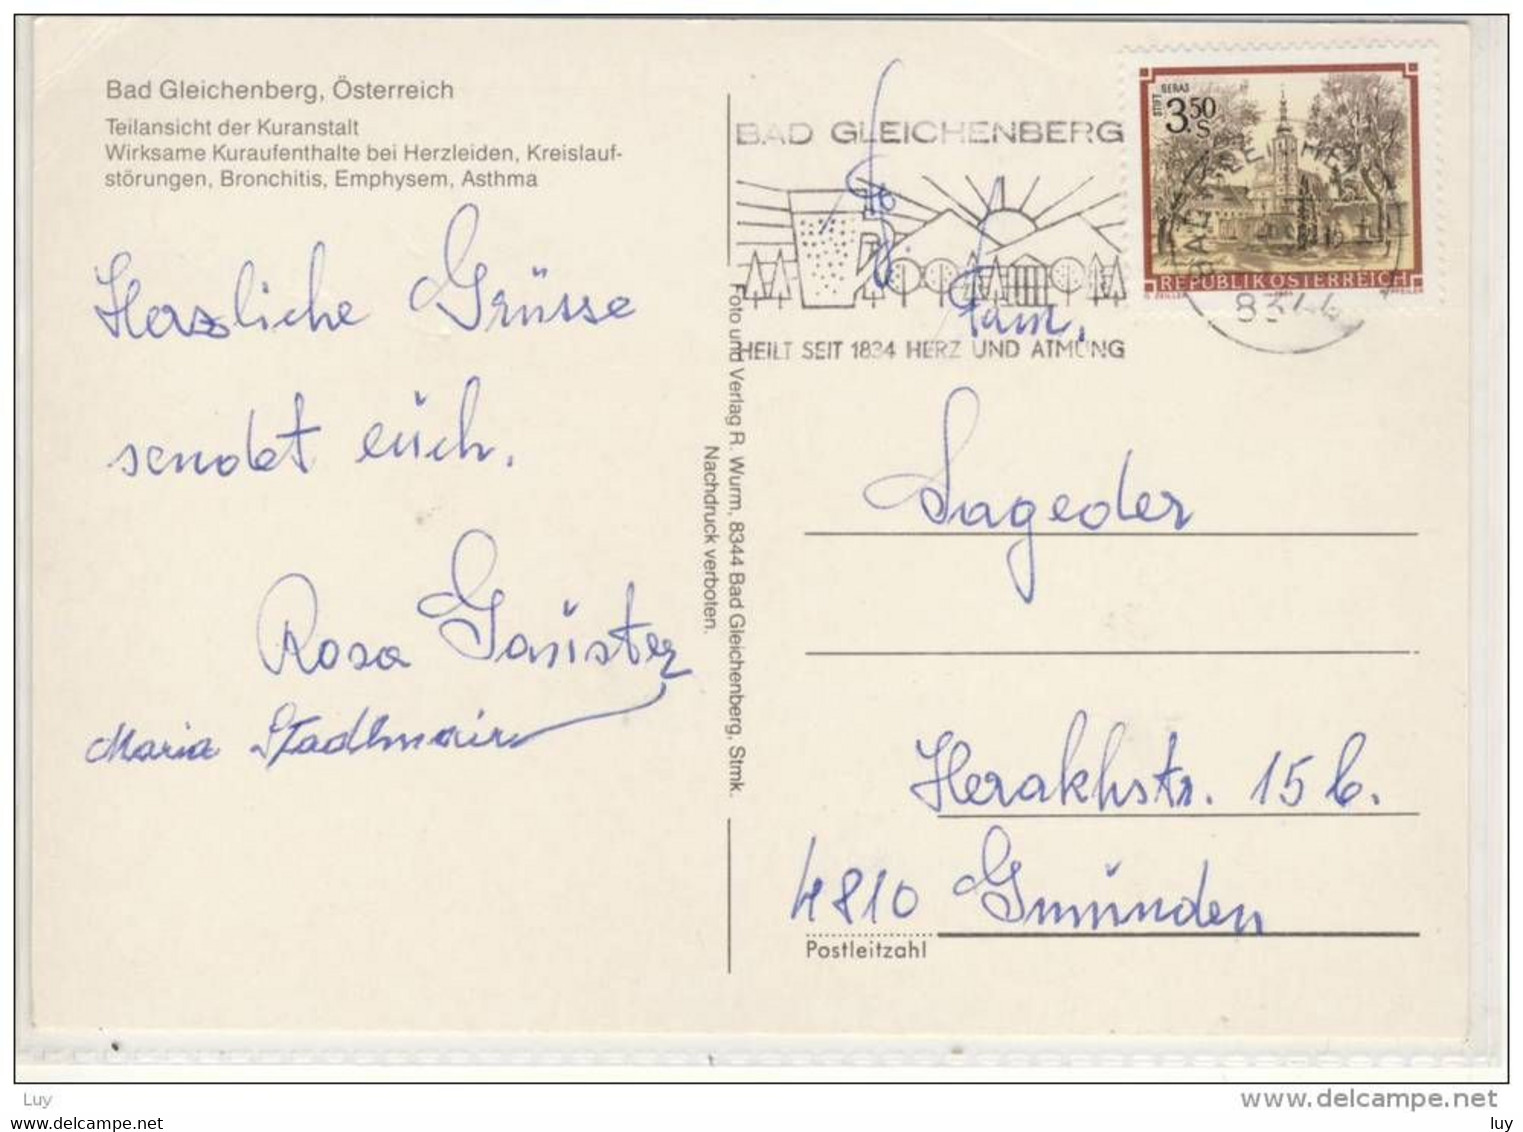 Bad Gleichenberg, Österreich
Teilansicht der Kuranstalt
Wirksame Kuraufenthalte bei Herzleiden, Kreislauf-
störungen, Bronchitis, Emphysem, Asthma
Herzliche Grüsse
sendet euch.
Rosa
Maria Stadlmair
Foto und Verlag R. Wurm, 8344 Bad Gleichenberg, Stmk.
Nachdruck verboten.
BAD GLEICHENBERG
HEILT SEIT 1834 HERZ UND ATMUNG
STIFT GERAS
3.50
S
REPUBLIK ÖSTERREICH
8344
Fam.
Sageder
15 b.
4810 Gmünden
Postleitzahl
Luy
www.delcampe.net
www.delcampe.net
luy